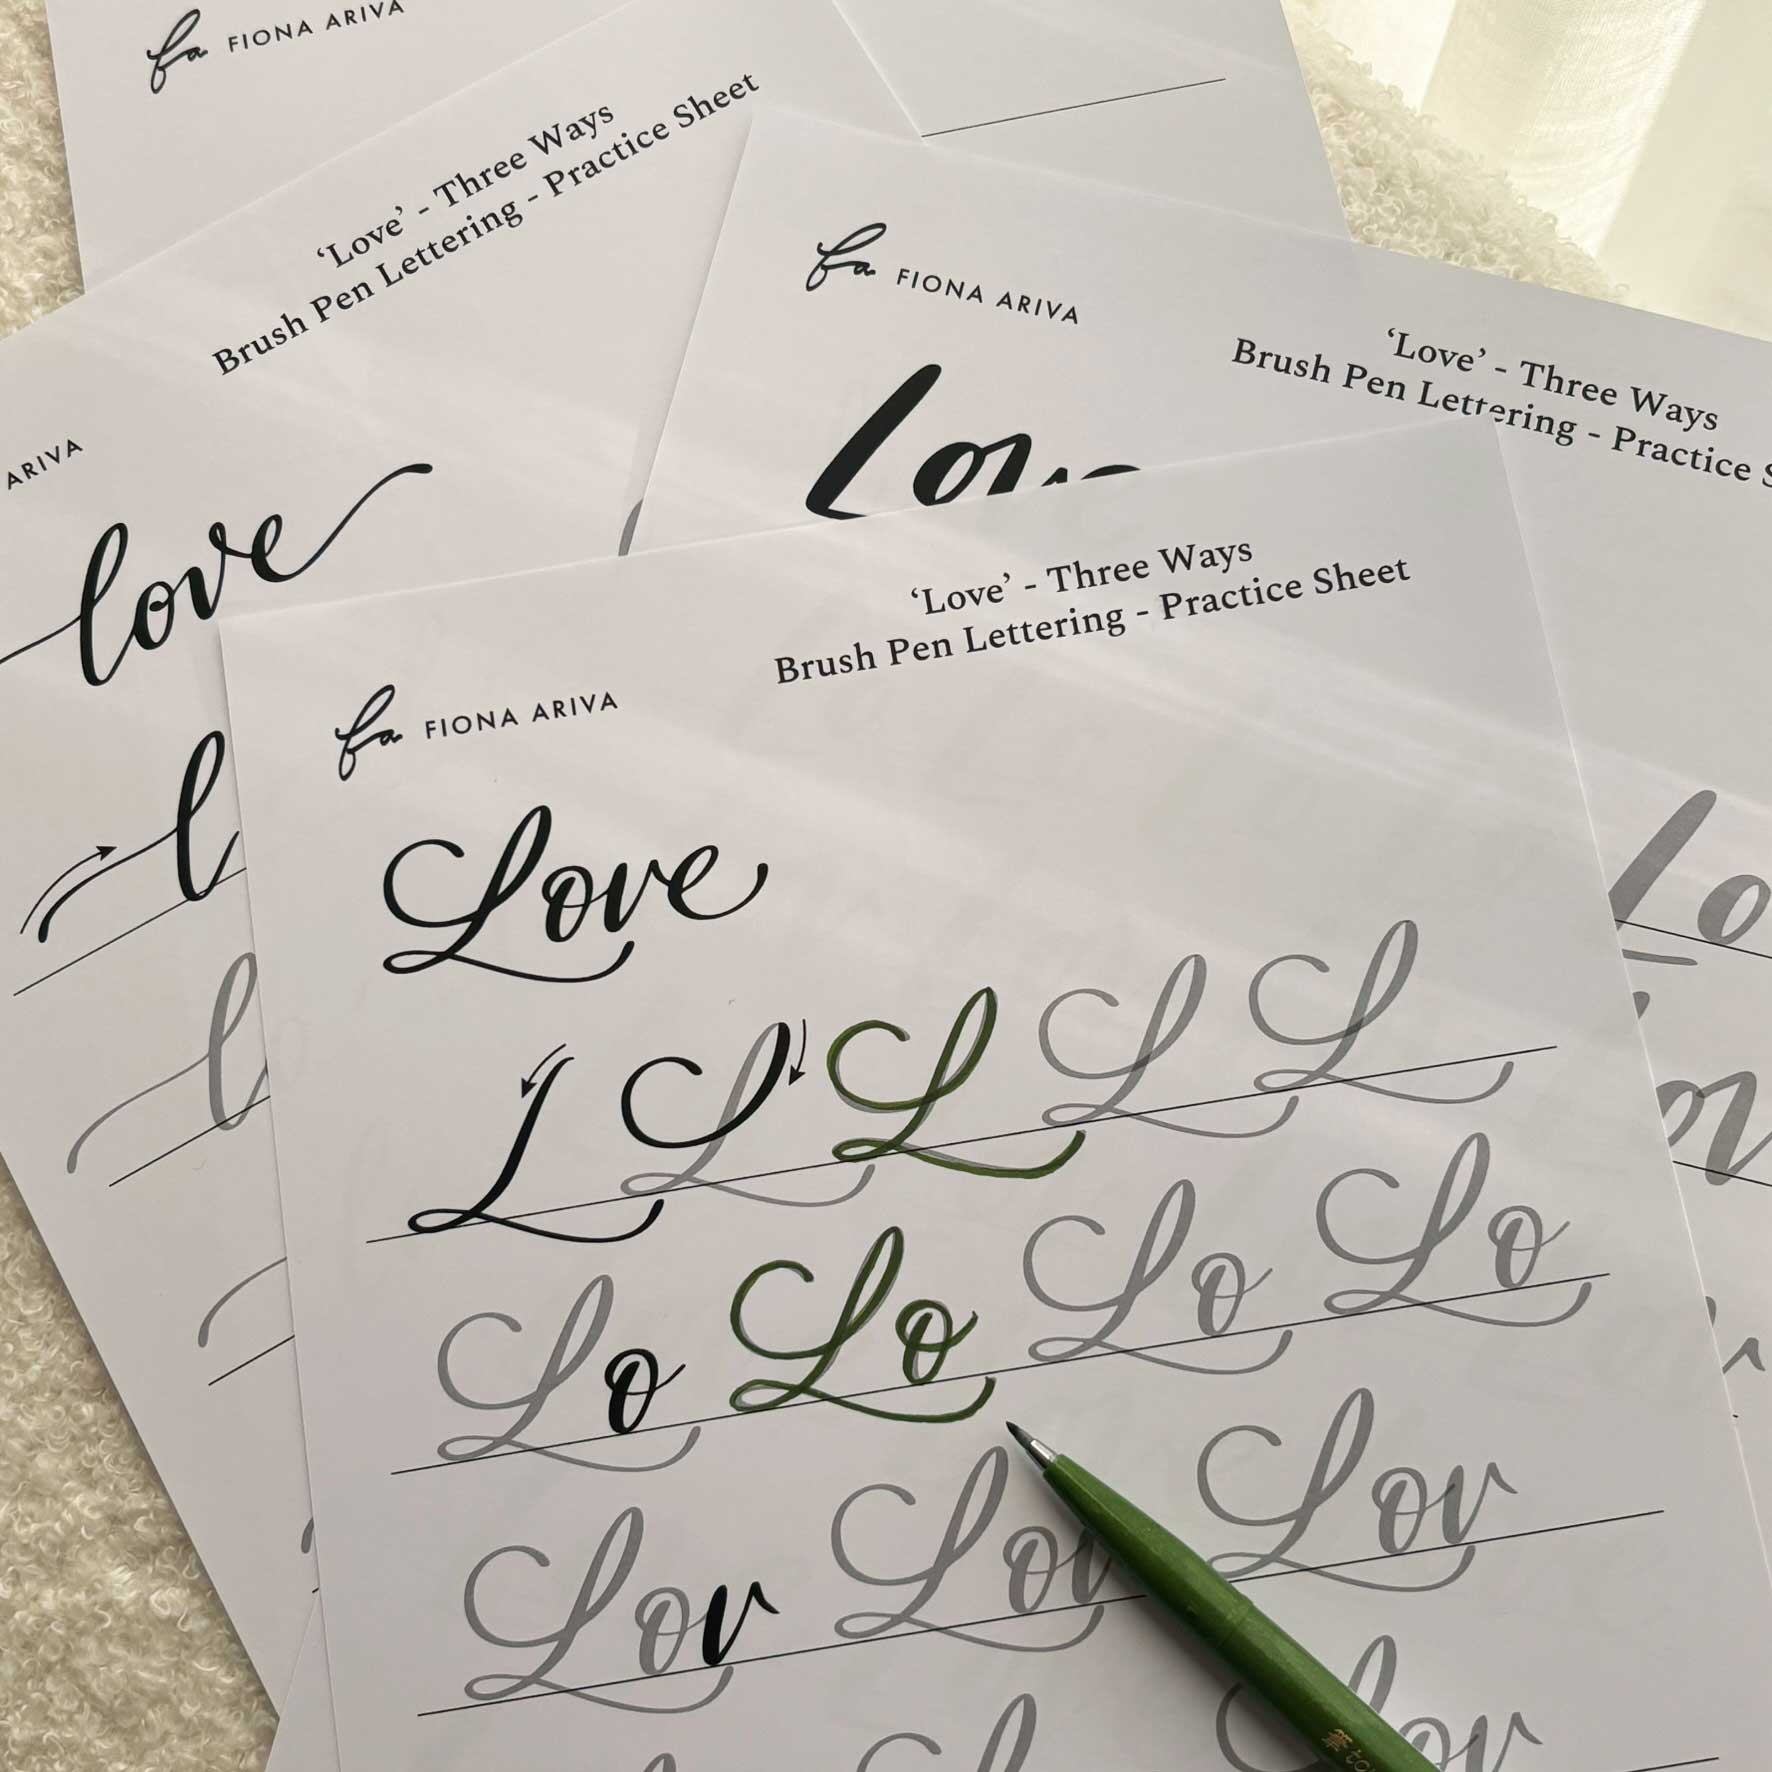 FIONA ARIVA
'Love' - Three Ways
Brush Pen Lettering - Practice Sheet
ARIVA
love
l
l
fa FIONA ARIVA
'Love' - Three Ways
Brush Pen Lettering - Practice
Lo
ov
'Love' - Three Ways
Brush Pen Lettering - Practice Sheet
fa FIONA ARIVA
Love
L L L L L
Lo Lo Lo Lo
Lov Lov Lov